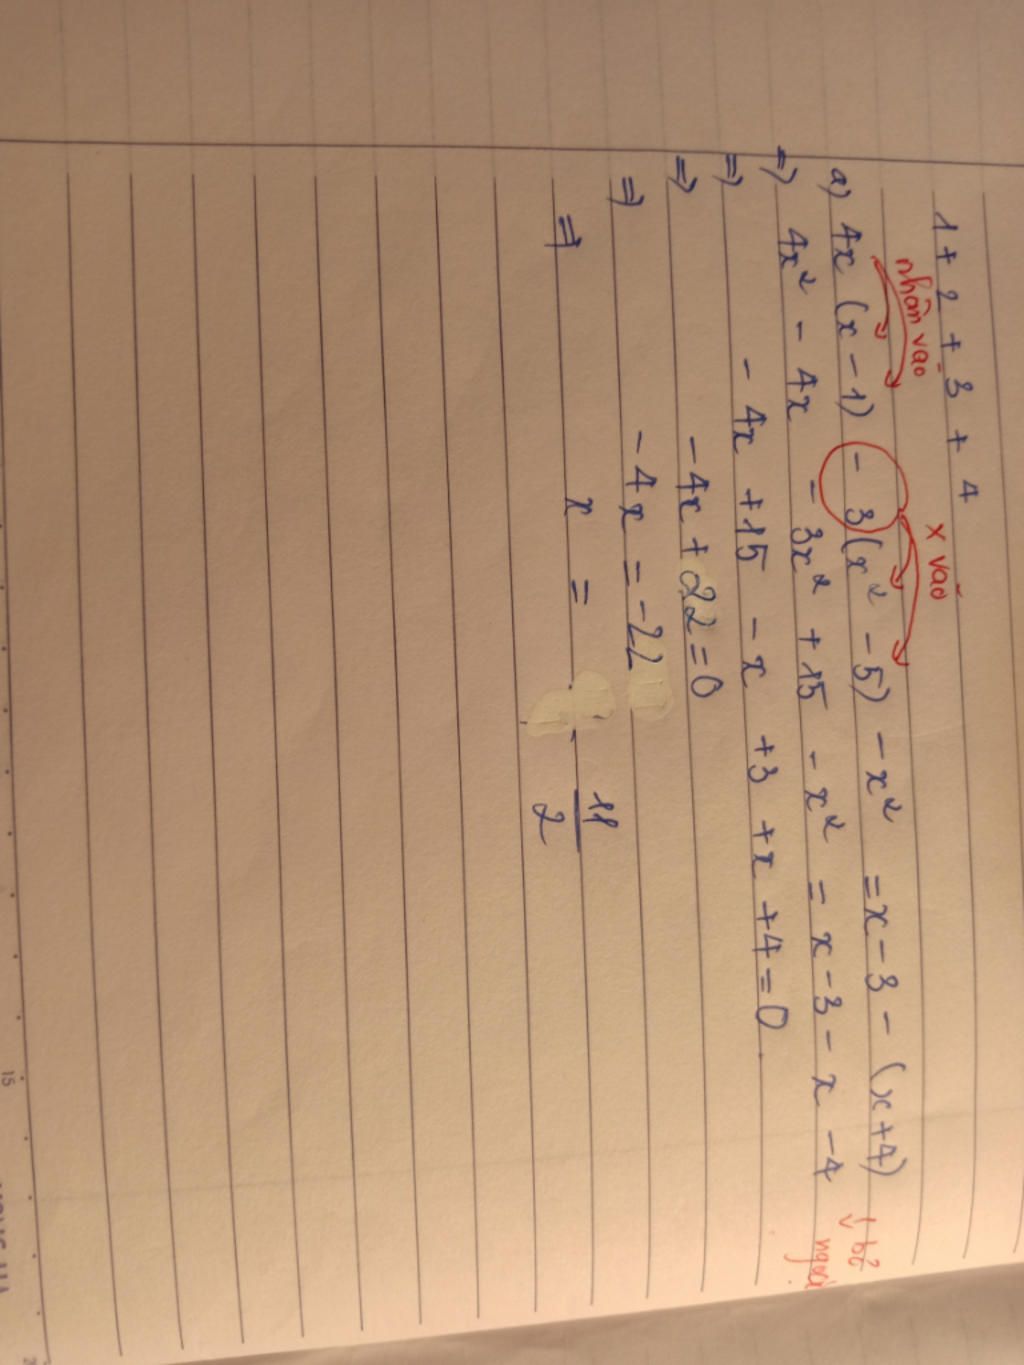 1 + 2 + 3 + 4
nhân vào x vào
a) 4x (x - 1) - 3(x² - 5) - x² = x - 3 - (x+4)
bỏ
=> 4x² - 4x - 3x² + 15 - x² = x - 3 - x - 4
=> - 4x + 15 - x + 3 + x + 4 = 0
=> - 4x + 22 = 0
=> - 4x = - 22
=> x = 11/2
15